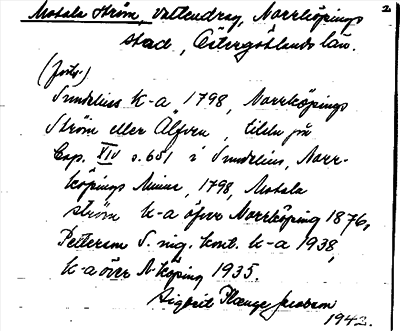 2
Motala Ström, vattendrag, Norrköpings
stad, Östergötlands län.
(forts.)
Sundelius k-a 1798, Norrköpings
Ström eller Älfven, titeln på
Cap. XIV s. 651 i Sundelius, Norr-
köpings Minne, 1798, Motala
ström k-a öfver Norrköping 1876,
Petterson S. sig. kont. k-a 1938,
k-a över N-köping 1935.
Sigbrit Plænge Jacobson
1942.